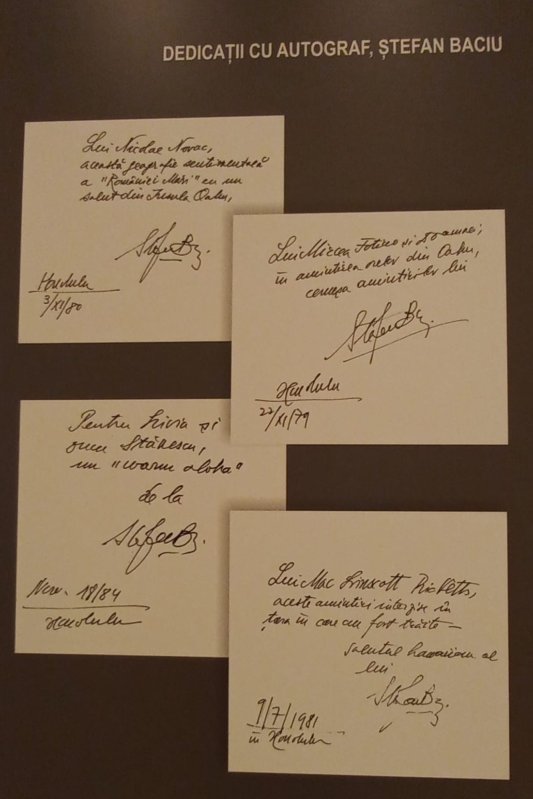 DEDICAȚII CU AUTOGRAF, ȘTEFAN BACIU
Lui Nicolae Novac,
această geografie sentimentală
a "României Mari" cu un
salut din Insula Oahu,
Honolulu
3/XI/80
Lui Mircea Fotino și doamnei,
în amintirea orelor din Oahu,
amintirilor lui
Honolulu
22/XI/79
Pentru Livia și
Stănescu,
un "warm aloha"
de la
Nov. 18/84
Honolulu
Lui Mac Linscott Ricketts,
aceste amintiri interzise în
țara în care au fost trăite –
salutul hawaiian al
lui
9/7/1981
în Honolulu